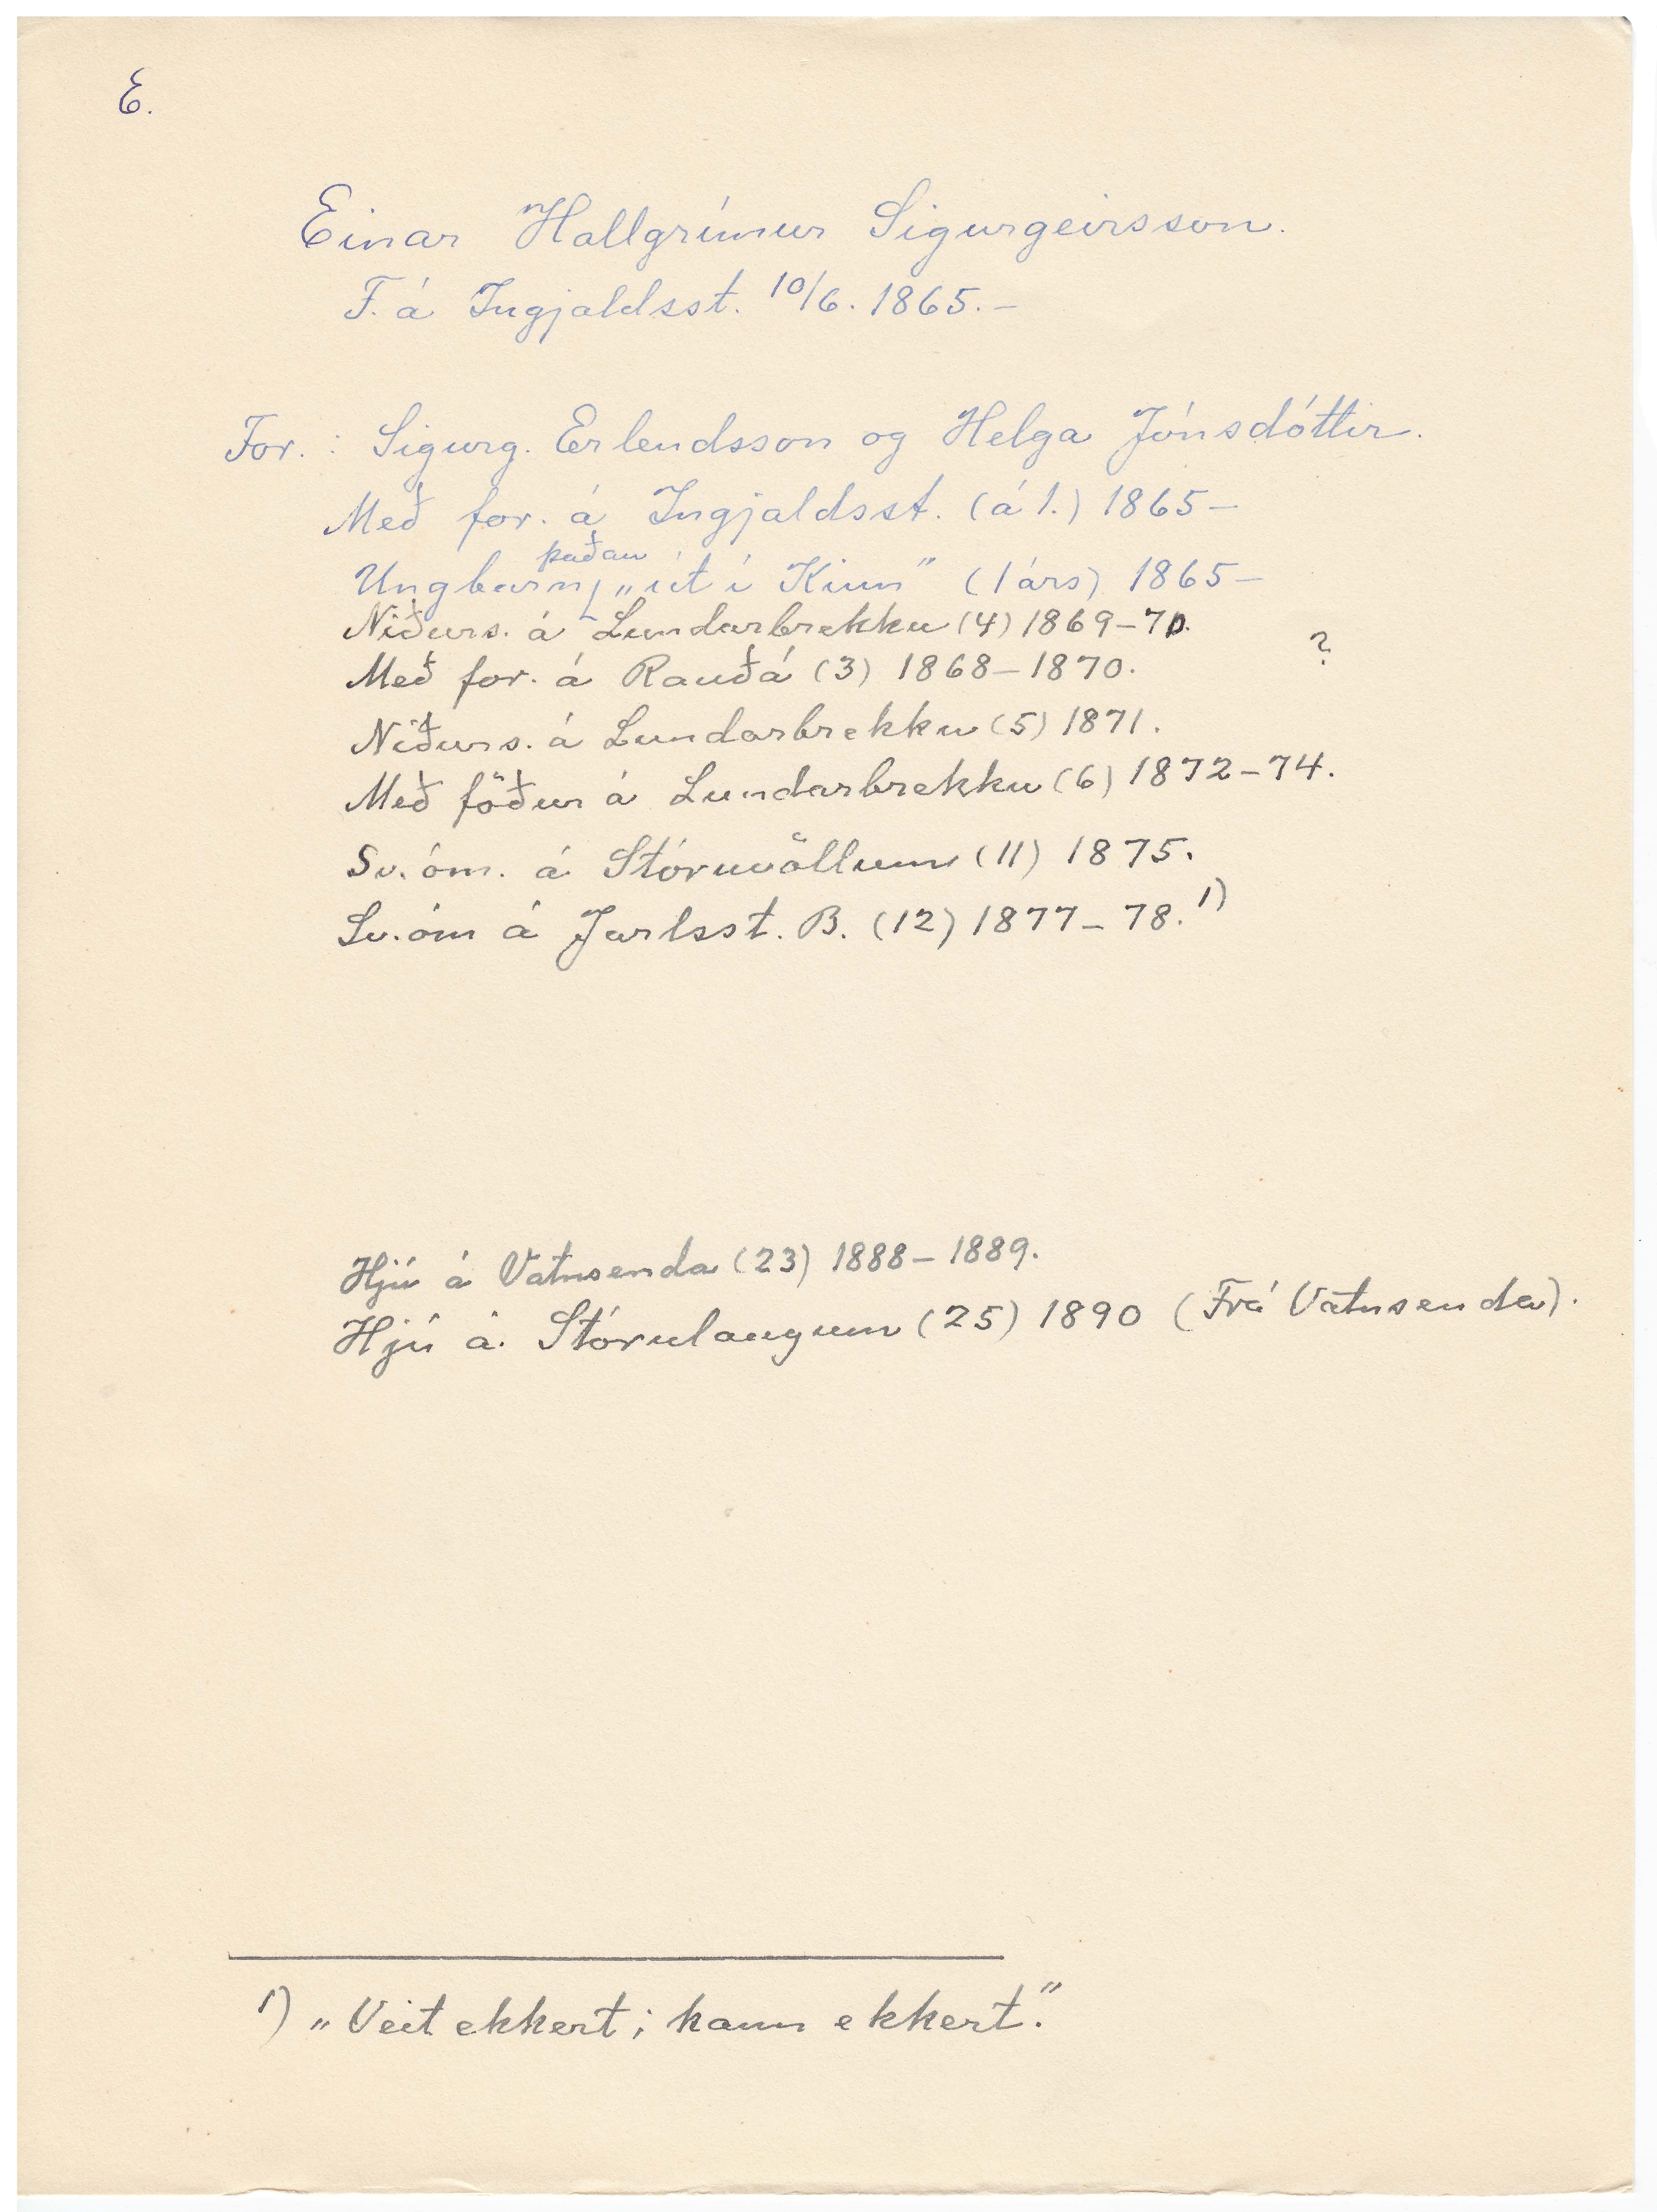 E.
Einar Hallgrímur Sigurgeirsson.
F. á Ingjaldsst. 10/6. 1865.–
For. : Sigurg. Erlendsson og Helga Jónsdóttir.
Með for. á Ingjaldsst. (á 1.) 1865–
þaðan
Ungbarn, „út í Kinn” (1 árs) 1865–
Niðurs. á Lundarbrekku (4) 1869–70.
?
Með for. á Rauðá (3) 1868–1870.
Niðurs. á Lundarbrekku (5) 1871.
Með föður á Lundarbrekku (6) 1872–74.
Sv. óm. á Stóruvöllum (11) 1875.
Sv. óm á Jarlsst. B. (12) 1877–78. 1)
Hjú á Vatnsenda (23) 1888–1889.
Hjú á. Stórulaugum (25) 1890 (Frá Vatnsenda).
1) „Veit ekkert; kann ekkert.”